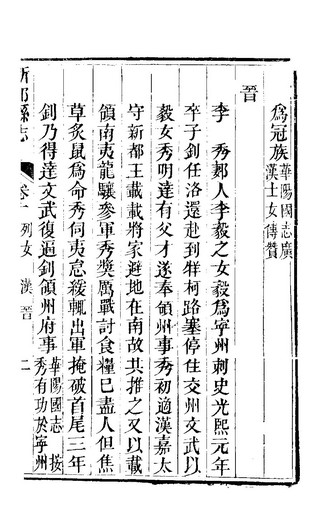 為冠族華陽國志廣
漢士女傳贊
晉
李　秀郪人李毅之女毅為寧州刺史光熙元年
卒子釗任洛還赴到牂柯路塞停住交州文武以
毅女秀明達有父才遂奉領州事秀初適漢嘉太
守新都王載載將家避地在南故共推之又以載
領南夷龍驤參軍秀獎厲戰討食糧已盡人但焦
草炙鼠為命秀伺夷怠緩輒出軍掩破首尾三年
釗乃得達文武復逼釗領州府事華陽國志　按
秀有功於寧州
新都縣志
卷十　列女　漢晉
二